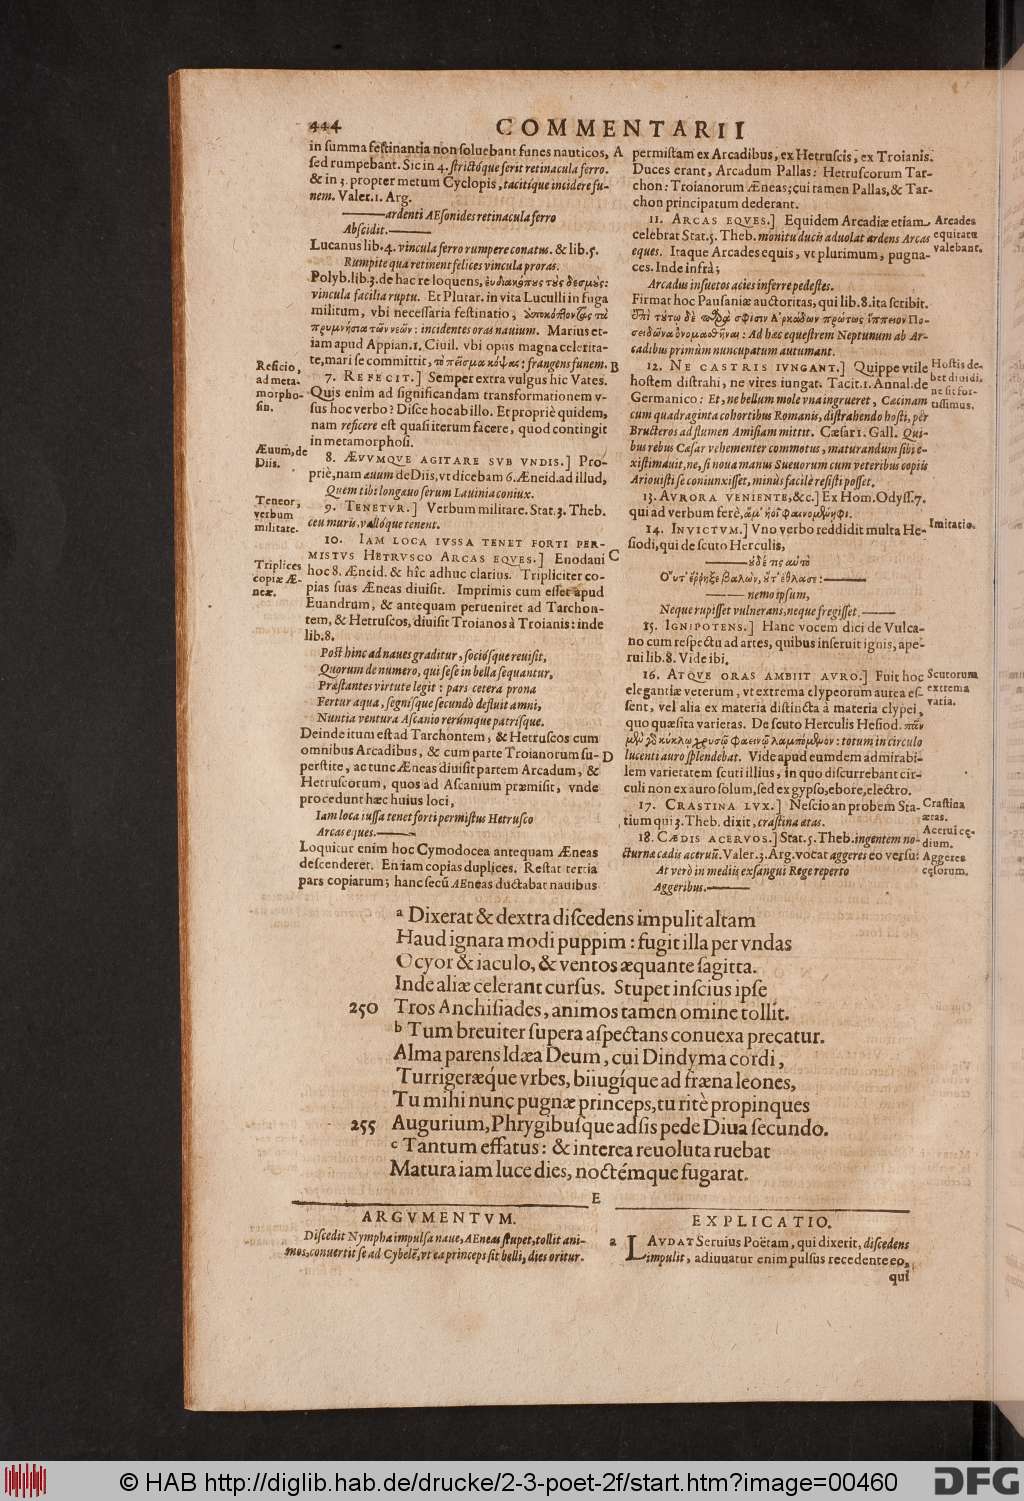 444
COMMENTARII
in summa festinantia non soluebant funes nauticos,
sed rumpebant. Sic in 4. strictóque ferit retinacula ferro.
& in 3. propter metum Cyclopis, tacitíque incidere fu-
nem. Valer. 1. Arg.
——ardenti AEsonides retinacula ferro
Abscidit.——
Lucanus lib. 4. vincula ferro rumpere conatus. & lib. 5.
Rumpite qua retinent felices vincula proras.
Polyb. lib. 3. de hac re loquens, τοὺς δεσμούς:
vincula facilia ruptu. Et Plutar. in vita Luculli in fuga
militum, vbi necessaria festinatio, ἀποκόπτοντας τὰ
πρυμνήσια τῶν νεῶν: incidentes oras nauium. Marius et-
iam apud Appian. 1. Ciuil. vbi opus magna celerita-
te, mari se committit, τὸ πεῖσμα κόψας: frangens funem.
7. REFECIT.] Semper extra vulgus hic Vates.
Quis enim ad significandam transformationem v-
sus hoc verbo? Disce hoc ab illo. Et propriè quidem,
nam reficere est quasi iterum facere, quod contingit
in metamorphosi.
8. ÆVVMQVE AGITARE SVB VNDIS.] Pro-
priè, nam æuum de Diis, vt dicebam 6. Æneid. ad illud,
Quem tibi longæuo serum Lauinia coniux.
9. TENETVR.] Verbum militare. Stat. 3. Theb.
ceu muris, vallóque tenent.
10. IAM LOCA IVSSA TENET FORTI PER-
MISTVS HETRVSCO ARCAS EQVES.] Enodaui
hoc 8. Æneid. & hîc adhuc clarius. Tripliciter co-
pias suas Æneas diuisit. Imprimis cum esset apud
Euandrum, & antequam perueniret ad Tarchon-
tem, & Hetruscos, diuisit Troianos à Troianis: inde
lib. 8.
Post hinc ad naues graditur, sociósque reuisit,
Quorum de numero, qui sese in bella sequantur,
Præstantes virtute legit: pars cetera prona
Fertur aqua, segnísque secundò defluit amni,
Nuntia ventura Ascanio rerúmque patrísque.
Deinde itum est ad Tarchontem, & Hetruscos cum
omnibus Arcadibus, & cum parte Troianorum su-
perstite, ac tunc Æneas diuisit partem Arcadum, &
Hetruscorum, quos ad Ascanium præmisit, vnde
procedunt hæc huius loci,
Iam loca iussa tenet forti permistus Hetrusco
Arcas eques.——
Loquitur enim hoc Cymodocea antequam Æneas
descenderet. En iam copias duplices. Restat tertia
pars copiarum; hanc secũ AEneas ductabat nauibus
Reficio,
ad meta-
morpho-
sin.
Æuum, de
Diis.
Teneor,
verbum
militare.
Triplices
copiæ Æ-
neæ.
A
B
C
D
permistam ex Arcadibus, ex Hetruscis, ex Troianis.
Duces erant, Arcadum Pallas: Hetruscorum Tar-
chon: Troianorum Æneas; cui tamen Pallas, & Tar-
chon principatum dederant.
11. ARCAS EQVES.] Equidem Arcadiæ etiam
celebrat Stat. 5. Theb. monitu ducis aduolat ardens Arcas
eques. Itaque Arcades equis, vt plurimum, pugna-
ces. Inde infrà;
Arcadas insuetos acies inferre pedestes.
Firmat hoc Pausaniæ auctoritas, qui lib. 8. ita scribit.
Ἐπὶ τούτῳ δὲ παρὰ σφίσιν Ἀρκάδων πρώτοις ἵππειον Πο-
σειδῶνα ὀνομασθῆναι: Ad hæc equestrem Neptunum ab Ar-
cadibus primùm nuncupatum autumant.
12. NE CASTRIS IVNGANT.] Quippe vtile
hostem distrahi, ne vires iungat. Tacit. 1. Annal. de
Germanico: Et, ne bellum mole vna ingrueret, Cæcinam
cum quadraginta cohortibus Romanis, distrahendo hosti, per
Bructeros ad flumen Amisiam mittit. Cæsar 1. Gall. Qui-
bus rebus Cæsar vehementer commotus, maturandum sibi e-
xistimauit, ne, si noua manus Sueuorum cum veteribus copiis
Ariouisti se coniunxisset, minùs facilè resisti posset.
13. AVRORA VENIENTE, &c.] Ex Hom. Odyss. 7.
qui ad verbum ferè, ἅμ' ἠοῖ φαινομένηφι.
14. INVICTVM.] Vno verbo reddidit multa He-
siodi, qui de scuto Herculis,
——οὐδέ τις αὐτὸ
Οὔτ' ἔῤῥηξε βαλὼν, οὔτ' ἔθλασε:——
——nemo ipsum,
Neque rupisset vulnerans, neque fregisset.——
15. IGNIPOTENS.] Hanc vocem dici de Vulca-
no cum respectu ad artes, quibus inseruit ignis, ape-
rui lib. 8. Vide ibi.
16. ATQVE ORAS AMBIIT AVRO.] Fuit hoc
elegantiæ veterum, vt extrema clypeorum aurea es-
sent, vel alia ex materia distincta à materia clypei,
quo quæsita varietas. De scuto Herculis Hesiod. πᾶν
μὲν γὰρ κύκλῳ χρυσῷ φαεινῷ λαμπόμενον: totum in circulo
lucenti auro splendebat. Vide apud eumdem admirabi-
lem varietatem scuti illius, in quo discurrebant cir-
culi non ex auro solum, sed ex gypso, ebore, electro.
17. CRASTINA LVX.] Nescio an probem Sta-
tium qui 3. Theb. dixit, crastina ætas.
18. CÆDIS ACERVOS.] Stat. 5. Theb. ingentem no-
cturnæ cædis aceruũ. Valer. 3. Arg. vocat aggeres eo versu:
At verò in mediis exsangui Rege reperto
Aggeribus.——
Arcades
equitatu
valebant.
Hostis de-
bet diuidi,
ne sit for-
tissimus.
Imitatio.
Scutorum
extrema
varia.
Crastina
ætas.
Acerui cę-
dium.
Aggeres
cęsorum.
a Dixerat & dextra discedens impulit altam
Haud ignara modi puppim: fugit illa per vndas
Ocyor & iaculo, & ventos æquante sagitta.
Inde aliæ celerant cursus. Stupet inscius ipse
250 Tros Anchisiades, animos tamen omine tollit.
b Tum breuiter supera aspectans conuexa precatur.
Alma parens Idæa Deum, cui Dindyma cordi,
Turrigeræq́ue vrbes, biiugíque ad fræna leones,
Tu mihi nunc pugnæ princeps, tu ritè propinques
255 Augurium, Phrygibusque adsis pede Diua secundo.
c Tantum effatus: & interea reuoluta ruebat
Matura iam luce dies, noctémque fugarat.
E
ARGVMENTVM.
Discedit Nympha impulsa naue, AEneas stupet, tollit ani-
mos, conuertit se ad Cybelẽ, vt ea princeps sit belli, dies oritur.
EXPLICATIO.
a LAVDAT Seruius Poëtam, qui dixerit, discedens
impulit, adiuuatur enim pulsus recedente eo,
qui
© HAB http://diglib.hab.de/drucke/2-3-poet-2f/start.htm?image=00460
DFG